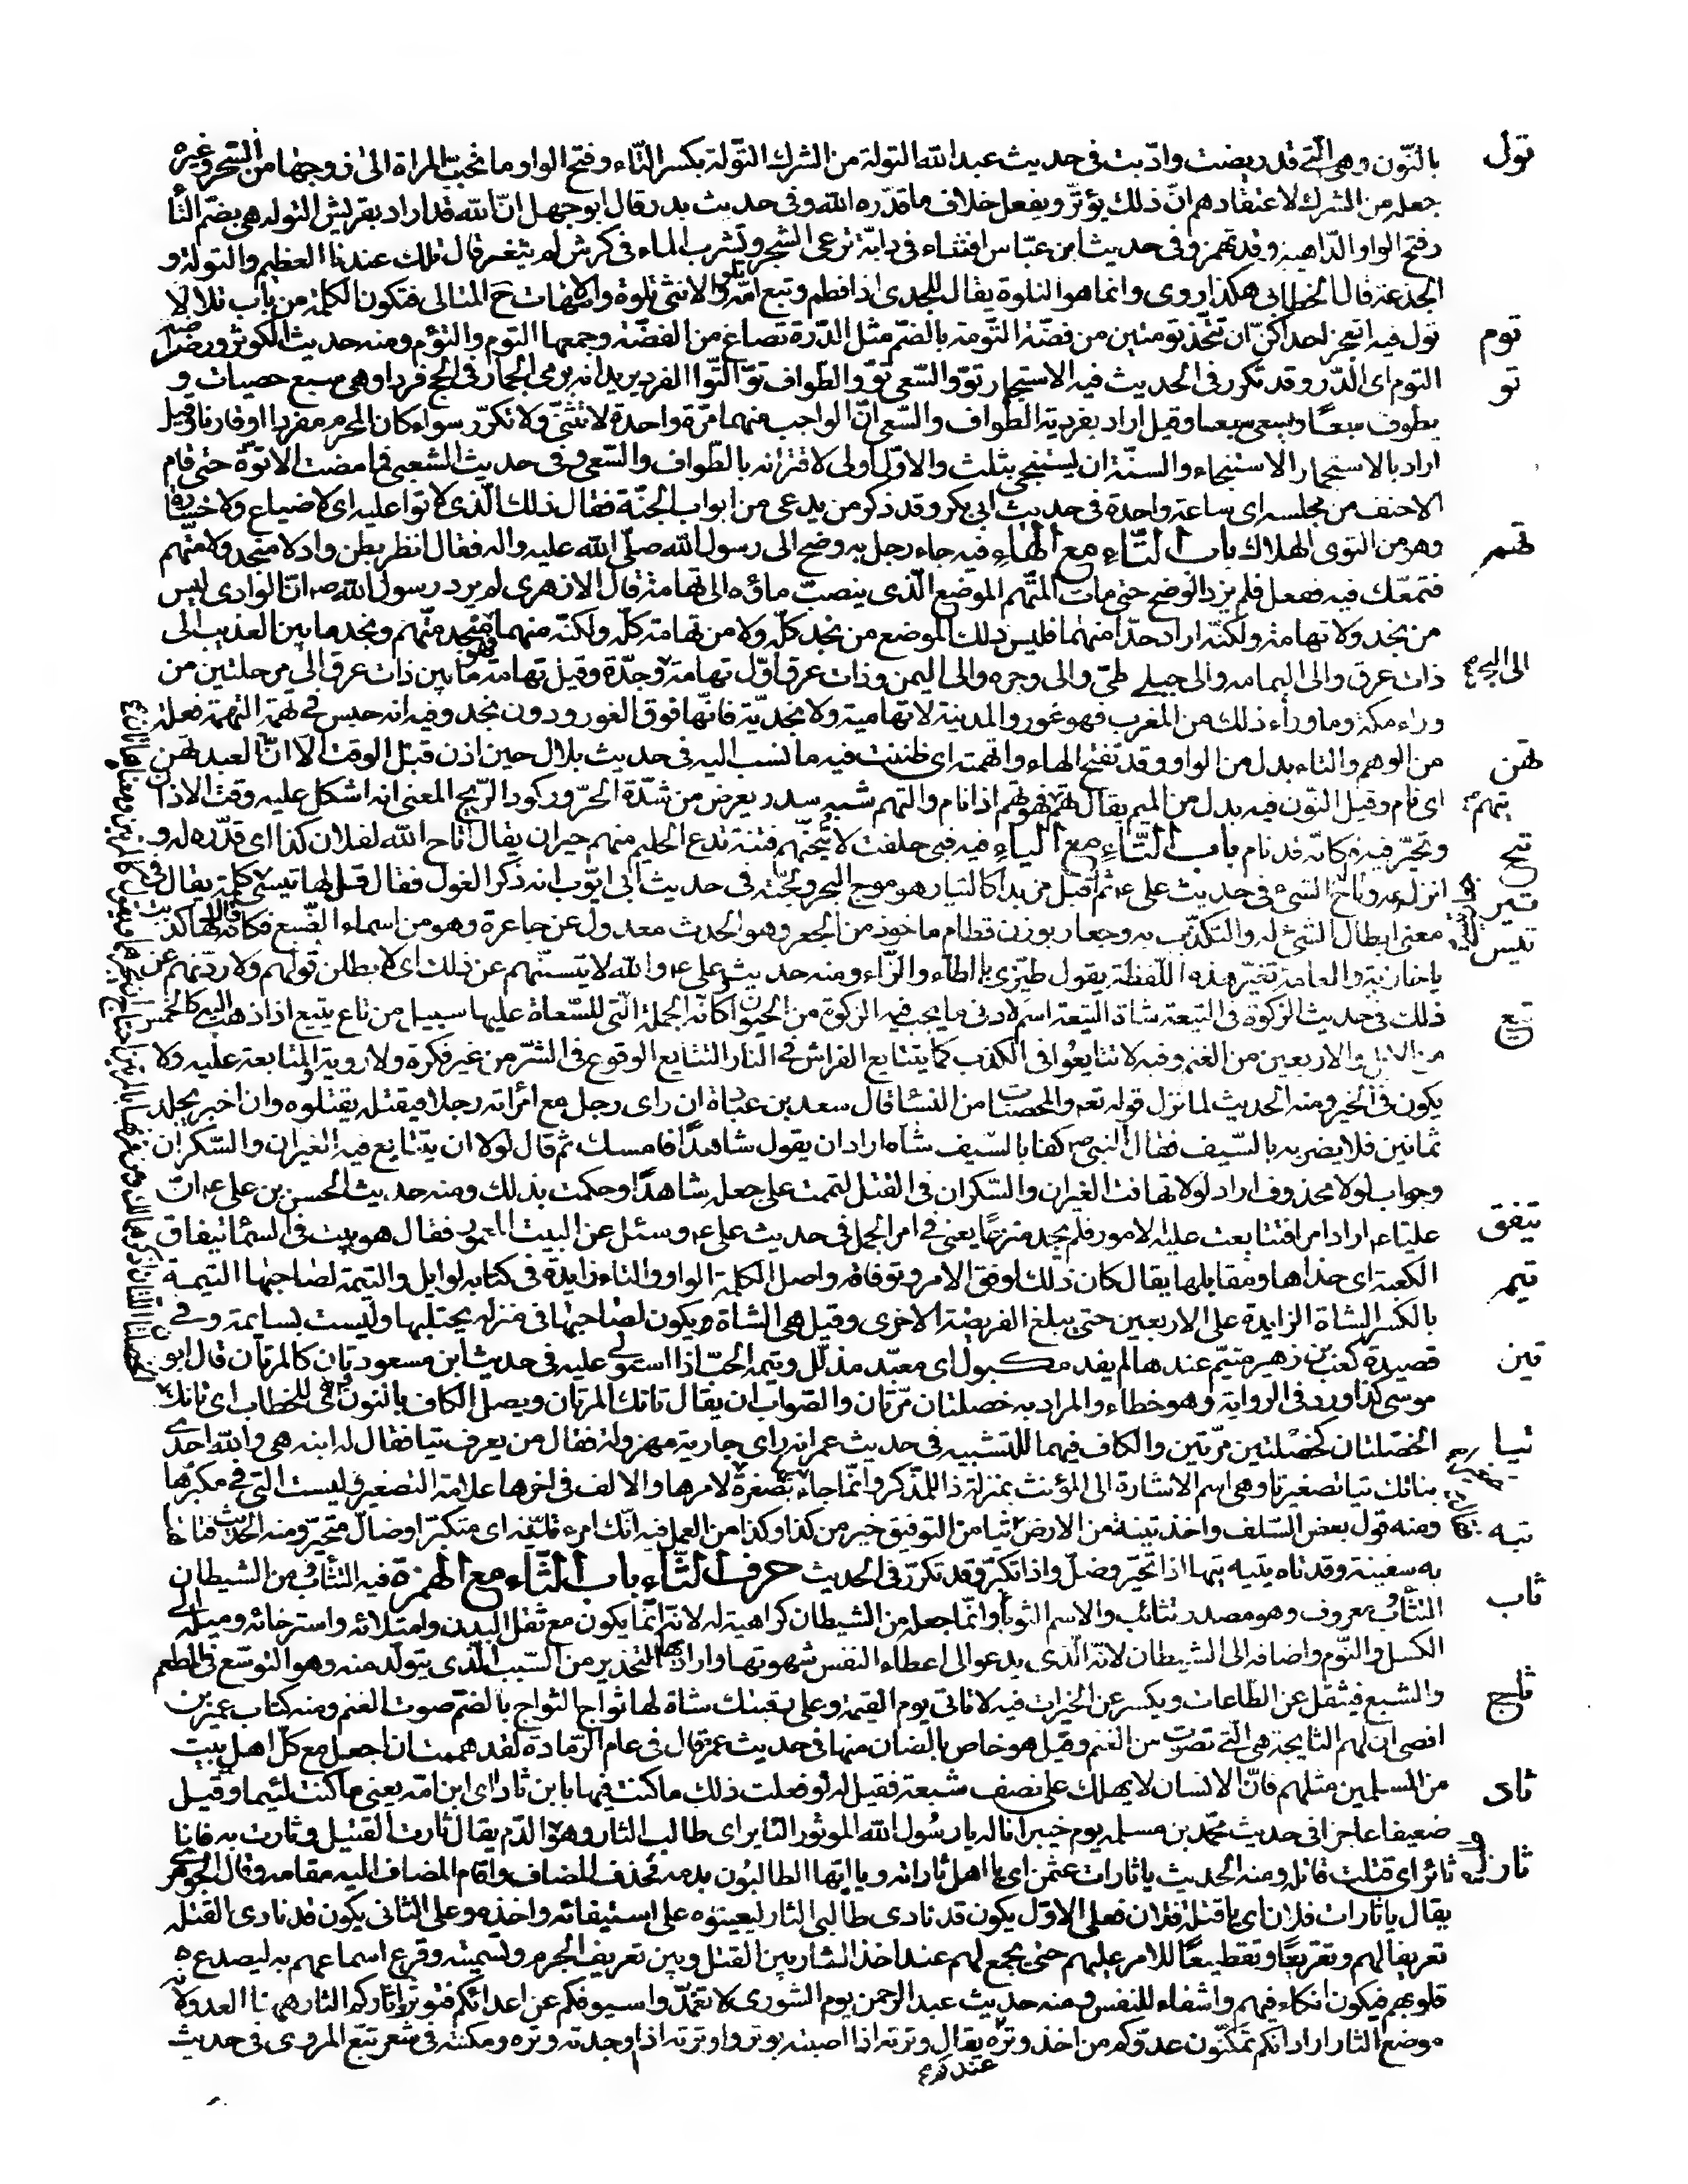 تول
بالنّون وهى الّتى قد ريضت وادّبت فى حديث عبد الله التولة من الشرك التّولة بكسر التّاء وفتح الواو ما يحبّب المراة الى زوجها من السّحر وغيره
جعله من الشرك لاعتقادهم انّ ذلك يؤثّر ويفعل خلاف ما قدّره الله وفى حديث بدر قال ابو جهل انّ الله قد اراد بقريش التوله هى بضمّ التّا
وفتح الواو الدّاهية وقد تهمز وفى حديث ابن عبّاس افتناء فى دابّة ترعى الشجر وتشرب الماء فى كرش لم يثغر قال تلك عندنا الفطيم والتولة و
الجذعة قال الخطابى هكذا روى وانما هو التلوة يقال للجدى اذا فطم وتبع امّه تلو والانثى تلوة والامّهات ح المتالى فتكون الكلمة من باب تلا لا
توم
تول فيه اتعجز احداكنّ ان تتّخذ تومتين من فضّة التّومة بالضمّ مثل الدّرة تصاغ من الفضّة وجمعها التوم والتوم ومنه حديث الكوثر ورضراضه
تو
التوم اى الدّر وقد تكرر فى الحديث فيه الاستجمار توّ والسّعى توّ والطّواف توّ التّوّ الفرد يريد انه يرمى الجمار فى الحج فردا وهى سبع حصيات و
يطوف سبعًا ويسعى سبعا وقيل اراد بفردية الطّواف والسّعى انّ الواجب منهما مرّة واحدة لا تثنّى ولا تكرّر سواء كان المحرم مفردا او قارنا وقيل
اراد بالاستجمار الاستنجاء والسنّة ان يستنجى بثلث والاوّل اولى لاقترانه بالطّواف والسّعى وفى حديث الشعبى فما مضت الا توّة حتى قام
الاحنف من مجلسه اى ساعة واحدة فى حديث ابى بكر وقد ذكر من يدعى من ابواب الجنّة فقال ذلك الّذى لا توا عليه اى لا ضياع ولا خسارة
تهم
وهو من التوى الهلاك باب التّاء مع الهاء فيه جاء رجل به وضح الى رسول الله صلّى الله عليه واله فقال انظر بطن واد لا منجد ولا متهم
فتمعّك فيه ففعل فلم يزد الوضح حتى مات المتّهم الموضع الّذى ينصبّ ماؤه الى تهامة قال الازهرى لم يرد رسول الله ص انّ الوادى ليس
من نجد ولا تهامة ولكنّه اراد حدّا منهما فليس ذلك الموضع من نجد كلّه ولا من تهامة كلّه ولكنّه منهما فهو منجد متهم ونجد ما بين العذيب الى
ذات عرق والى اليمامه والى جبلى طىّ والى وجره والى اليمن وذات عرق اوّل تهامة وجدّة وقيل تهامة ما بين ذات عرق الى مرحلتين من
وراء مكة وما وراء ذلك من المغرب فهو غور والمدينة لا تهامية ولا نجديّة فانّها فوق الغور ودون نجد وفيه انه حبس فى تهمة التهمة فعلة
تهن
من الوهم والتاء بدل من الواو وقد تفتح الهاء واتّهمته اى ظننت فيه ما نسب اليه فى حديث بلال حين اذن قبل الوقت الا انّ العبد تهن
اى نام وقيل النون فيه بدل من الميم يقال تهم فهو تهم اذا نام والتهم شبه سدر يعرض من شدّة الحرّ وركود الرّيح المعنى انه اشكل عليه وقت الاذان
تيح
وتحيّر فيه فكانّه قد نام باب التّاء مع الياء فيه فبى حلفت لاتيحنّهم فتنة تدع الحليم منهم حيران يقال اتاح الله لفلان كذا اى قدّره له و
تير
انزله به وتاح له الشىء فى حديث على ع ثم اقبل مزبدا كالتيار هو موج البحر ولجّته فى حديث ابى ايّوب انه ذكر الغول فقال قل لها تيسى كلمة يقال فى
تيس
معنى ابطال الشىء له والتكذّب به وجعار بوزن قطام ماخوذ من الجعر وهو الحدث معدول عن جاعرة وهو من اسماء الضّبع فكانّه قال لها كذبت
يا خارية والعامة تغيّر هذه اللّفظة يقول طيزى بالطاء والزّاء ومنه حديث على ع والله لاتيسنّهم عن ذلك اى لابطلن قولهم ولاردّنهم عن
تيع
ذلك فى حديث الزكوة فى التيعة شاة التيعة اسم لادنى ما يجب فيه الزكوة من الحيوان وكانّه الجملة التى للسّعاة عليها سبيل من تاع يتيع اذا ذهب اليه كالخمس
من الابل والاربعين من الغنم وفيه لا تتايعوا فى الكذب كما يتتايع الفراش فى النار التتايع الوقوع فى الشرّ من غير فكرة ولا روية والمتابعة عليه ولا
يكون فى الخير ومنه الحديث لما نزل قوله تعه والمحصنات من النساء قال سعد بن عبادة ان راى رجل مع امراته رجلا فيقتله يقتلوه وان اخبر يجلد
ثمانين فلا يضربه بالسّيف فقال النبى ص كفا بالسّيف شا اراد ان يقول شاهدًا فامسك ثم قال لولا ان يتتايع فيه الغيران والسّكران
وجواب لولا محذوف اراد لولا تهافت الغيران والسّكران فى القتل لتممت على جعله شاهدًا وحكمت بذلك ومنه حديث الحسن بن على ع انّ
تيفق
عليّا ع اراد امرا فتتايعت عليه الامور فلم يجد منزعًا يعنى فى امر الجمل فى حديث على ع وسئل عن البيت المعمور فقال هو بيت فى السماء تيفاق
تيم
الكعبة اى حذاها ومقابلها يقال كان ذلك لوفق الامر وتوفاقه واصل الكلمة الواو والتاء زايدة فى كتابه لوايل والتيمة لصاحبها التيمة
بالكسر الشاة الزايدة على الاربعين حتى يبلغ الفريضة الاخرى وقيل هى الشاة ويكون لصاحبها فى منزله يحتلبها وليست بسايمة وفى
تين
قصيدة كعب بن زهير متيّم عندها لم يفد مكبول اى معبّد مذلّل وتيمه الحبّ اذا استولى عليه فى حديث ابن مسعود تان كالمرتان قال ابو
موسى كذا ورد فى الرواية وهو خطاء والمراد به خصلتان مرّتان والصّواب ان يقال تانك المرّتان ويصل الكاف بالنون وهى للخطاب اى تانك
تيا
الخصلتان كخصلتين مرّتين والكاف فيهما للتشبيه فى حديث عمر انه راى جارية مهزولة فقال من يعرف تيا فقال له ابنه هى والله احدى
بناتك تيا تصغير تا وهى اسم الاشارة الى المؤنث بمنزلة ذا للمذكر وانّما جاء بها مصغرة لامرها والالف فى اخرها علامة التصغير وليست التى فى مكبّرها
تيه
ومنه قول بعض السّلف واخذ تبنة من الارض تيا من التوفيق خير من كذا وكذا من العمل فيه انّك امرء تايه اى متكبّر او ضالّ متحيّر ومنه الحديث فتاهت
به سفينته وقد تاه يتيه تيها اذا تحيّر وضلّ واذا تكبّر وقد تكرّر فى الحديث حرف الثّاء باب الثّاء مع الهمزة فيه التثأب من الشيطان
ثاب
التثأب معروف وهو مصدر تثائب والاسم الثوباء وانّما جعله من الشيطان كراهية له لانّه انّما يكون مع ثقل البدن وامتلائه واسترخائه وميله الى
الكسل والنّوم واضافه الى الشيطان لانّه الّذى يدعو الى اعطاء النفس شهوتها واراد به التحذير من السّبب الّذى يتولّد منه وهو التوسّع فى المطعم
ثاج
والشبع فيثقل عن الطّاعات ويكسر عن الخيرات فيه لا تاتى يوم القيمة وعلى رقبتك شاة لها ثواج الثواج بالضمّ صوت الغنم ومنه كتاب عمير بن
افصى ان لهم الثايجة هى الّتى تصوّت من الغنم وقيل هو خاص بالضان منها فى حديث عمر قال فى عام الرّمادة لقد هممت ان اجعل مع كلّ اهل بيت
ثاد
من المسلمين مثلهم فانّ الانسان لا يهلك على نصف شبعه فقيل له لو فعلت ذلك ما كنت فيها بابن ثادا اى ابن امّة يعنى ما كنت لئيما وقيل
ضعيفا عاجزا فى حديث محمّد بن مسلمه يوم خيبر انا له يا رسول الله الموثور الثاير اى طالب الثار وهو الدّم يقال ثارت القتيل وثارت به فانا
ثار
ثائر اى قتلت قاتله ومنه الحديث يا ثارات عثمن اى يا اهل ثاراته ويا ايّها الطالبون بدمه فحذف المضاف واقام المضاف اليه مقامه وقال الجوهرى
يقال يا ثارات فلان اى يا قتلة فلان فعلى الاوّل يكون قد نادى طالبى الثار ليعينوه على استيفائه واخذه وعلى الثانى يكون قد نادى القتلة
تعريفا لهم وتقريعًا وتفظيعًا للامر عليهم حتى يجمع لهم عند اخذ الثار بين القتل وبين تعريف الجرم وتسميته وقرع اسماعهم به ليصدع
قلوبهم فيكون انكاء فيهم واشفاء للنفس ومنه حديث عبد الرحمن يوم الشورى لا تغمدوا سيوفكم عن اعدائكم فتوتروا ثاركم الثار ههنا العدو لانّه
موضع الثار اراد انكم تمكّنون عدوّكم من اخذ وتره عندكم يقال وترته اذا اصبته بوتر واوترته اذا اوجدته وتره ومكنته فى شعر تبّع المروى فى حديث